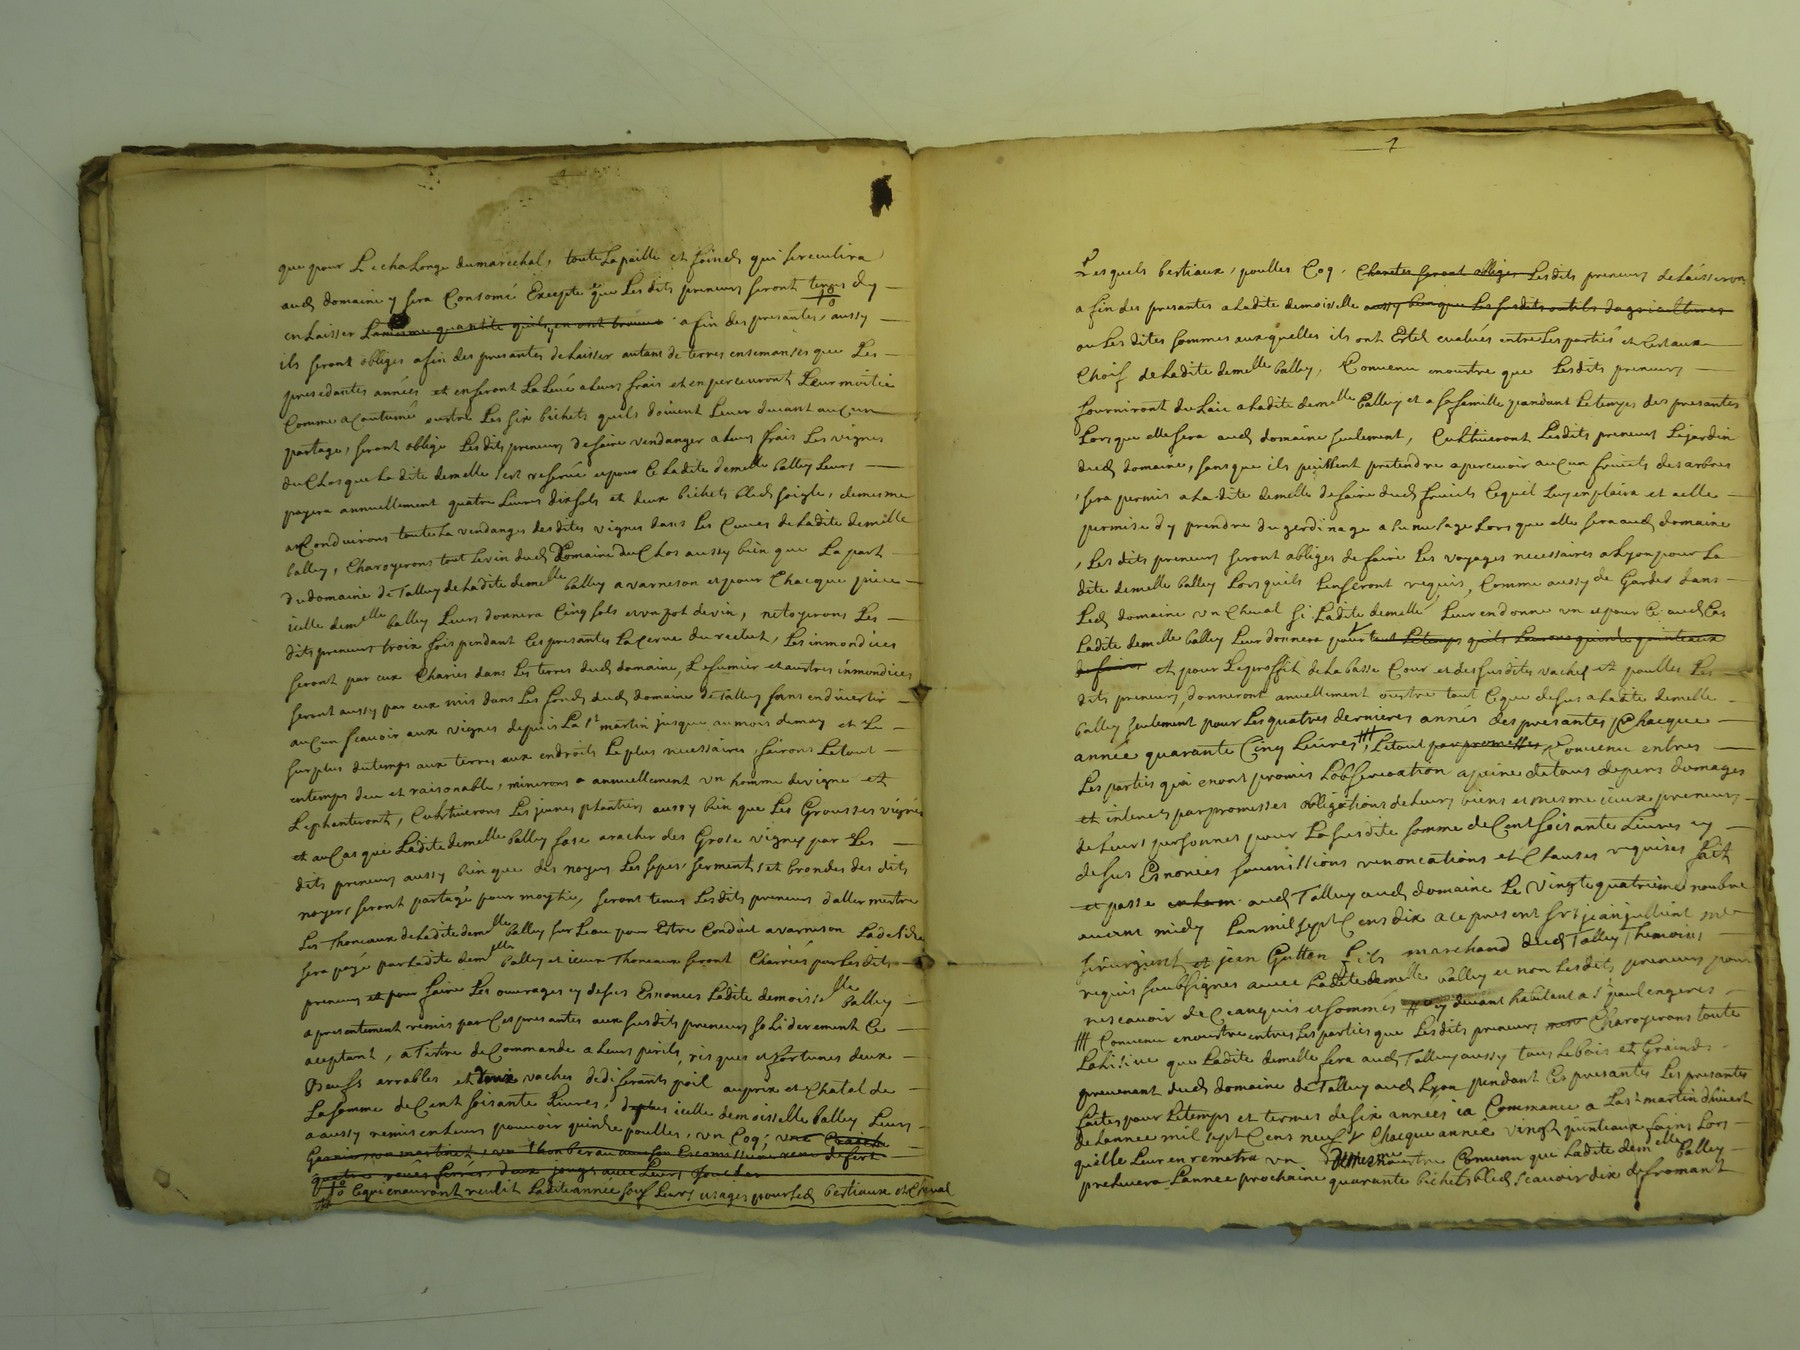 que pour Lechalonge dumarechal, toute La paille et foinds qui sereculira
audt domaine y sera Consomé Excepté que Lesdits preneurs seront tenus dy
en Laisser Lamesme quantité quils y en ont trouvé a fin des presantes, aussy
ils seront obligés afin des presantes de Laisser autant de terres ensemansés que Les
presedantes années et en feront La Levé a Leurs frais et en perceuvront Leur moitié
Comme acoutumé outre Les six bichets quils doivent Lever devant aucun
partage, seront obligé Lesdits preneurs defaire vendanger a Leurs frais Les vignes
du Clos que Ladite demelle sest reservé et pour Ce Ladite demelle balley Leurs
payera annuellement quatre Livres dix sols et deux bichets bled soigle, demesme
Conduirons toute La vendange desdites vignes dans Les Cuves de Ladite demelle
balley, Charoyerons tout Levin dudt Domaine du Clos aussy bien que La part
du domaine de Talluy de Ladite demelle balley a varneson et pour Chacque piece
icelle demelle balley Leurs donnera Cinq sols et un pot de vin, netoyerons Les
dits preneurs trois fois pendant Ces presantes La Cerve du reclut, Les inmondices
seront par eux Chariés dans Les terres dudt domaine, Lefumier et autres inmondices
seront aussy par eux mis dans Les fonds dudt domaine de Talluy sans endivertir
aucun scavoir aux vignes depuis La St martin jusque au mois de may et Le
surplus dutemps aux terres aux endroits Le plus necessaires, fairons Letout
entemps deu et raisonable, minerons annuellement un homme devigne et
Leplanteront, Cultiverons Les jeunes plantiers aussy bien que Les Grousses vignes
et au Cas que Ladite demelle balley fase aracher des Grose vignes par Les
dits preneurs aussy bien que des noyers Les seps, serments et brondes des dits
noyers seront partagé pour moytié, seront tenus Lesdits preneurs daller mettre
Les Thoneaux de Ladite demelle balley sur Leau pour Estre Conduit a varneson
sera payé par Ladite demelle balley et iceux Thoneaux seront Charriés par Lesdits
preneurs et pour faire Les ouvrages cy desus Enoncés Ladite demoiselle balley
a presentement remis par Ces presantes aux susdits preneurs solidérement Ce
aceptant, a Tiltre de Commande a Leurs perils, risques et fortunes deux
Beufs arrables et trois vaches de diferants poil au prix et Chatal de
La somme de Cent soisante Livres, deplus icelle demoiselle balley Leurs
a aussy remis en Leurs pouvoir quinze poulles, un Coq,
quatre deux jougs avec Leurs
Ceque en auront recullit Laditte année sauf Leurs usages pour Lesdt bestiaux et Cheval
1
Lesquels bestiaux, poulles Coq, Lesdits preneurs de Laisseront
a fin des presantes a Ladite demoiselle aussy bien que Les susdits outils dagricultures
ou Lesdites sommes auxquelles ils ont Esté evalués entre Les partiés et Cestaux
Choix de Ladite demelle balley, Convenu en outre que Lesdits preneurs
fourniront du Laic a Ladite demelle balley et a sa famille pandant Letemps des presantes
Lors que elle sera audt domaine seulement, Cultiveront Lesdits preneurs Lejardin
dudt domaine, sans que ils puissent pretendre a percevoir aucun fruicts des arbres
sera permis a Ladite demelle defaire dudt fruicts Cequil Luy en plaira et a elle
permise dy prendre du gerdinage a son usage Lors que elle sera audt domaine
Lesdits preneurs seront obligés defaire Les voyages necessaires a Lyon pour La
dite demelle balley Lorsquils Lenseront requis, Comme aussy de Garder dans
Ledt domaine un Cheval si Ladite demelle Leur en donne un et pour Ce audt Cas
Ladite demelle balley Leur donnera pour tout Letemps quils quinze quinteaux
de foin et pour Leproffit de La basse Cour et des susdites vaches et poulles Les
dits preneurs donneront annuellement outre tout Ceque desus a Ladite demelle
balley seulement pour Les quatres dernieres annés des presantes Chacque
année quarante Cinq Livres, Letout par promesses, Convenu entres
Les partiés qui en ont promis Lobservation a peine de tous depens domages
et interets par promesses obligations de Leurs biens et mesme iceux preneurs
de Leurs personnes pour La susdite somme de Cent soisante Livres cy
desus Enoncés soumissions renoncations et Clauses requises fait
et passé audt Talluy audt domaine Le vingt quatrième novembre
avant midy Lan mil sept Cens dix a ce present sr jean jullint me
sirurgient et jean Gutton fils marchand dudt Talluy Themoins
requis soubsignés avec Ladite demelle balley et non Lesdits preneurs pour
ne scavoir de Ce enquis et sommés
Convenu en outre entres Les parties que Lesdits preneurs Charoyerons toute
que Ladite demelle fera audt Talluy aussy tous Lebois et Graines
provenant dudt domaine de Talluy audt Lyon pendant Ces presantes Les presantes
faites pour Letemps et termes de six années ia Commancé a La St martin dhivert
de Lannee mil sept Cens neuf & Chacque année vingt quinteaux foins Lors
quelle Leur en remetra un Convenu que Ladite demelle balley
prelevera Lannee prochaine quarante bichets bled scavoir dix de fromant